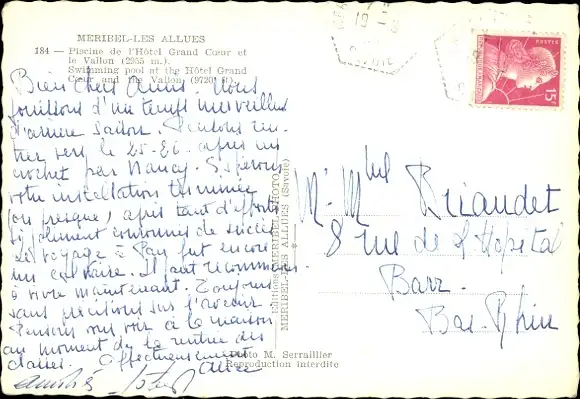 MERIBEL-LES ALLUES
184 — Piscine de l'Hôtel Grand Cœur et
le Vallon (2955 m.)
Swimming pool at the Hôtel Grand
Cœur and the Vallon (9720 ft).
Bien chers amis. Nous
jouissons d'un temps merveilleux
d'arrière saison. Pensons ren-
trer vers le 25-26 après un
crochet par Nancy. Espérons
votre installation terminée
(ou presque, après tant d'efforts
si joliment couronnés de succès
Le voyage à Pau fut encore
un calvaire. Il faut recommencer
à vivre maintenant. Toujours
sans précisions sur l'avenir.
Pensons vous voir à la maison
au moment de la rentrée des
classes. Affectueusement
amitiés
Alice
Editions MERIBEL-PHOTO
MERIBEL-LES ALLUES (Savoie)
Photo M. Serraillier
Reproduction interdite
POSTES
15F
Mr Mme Riaudet
8 rue de l'Hopital
Barr
Bas-Rhin